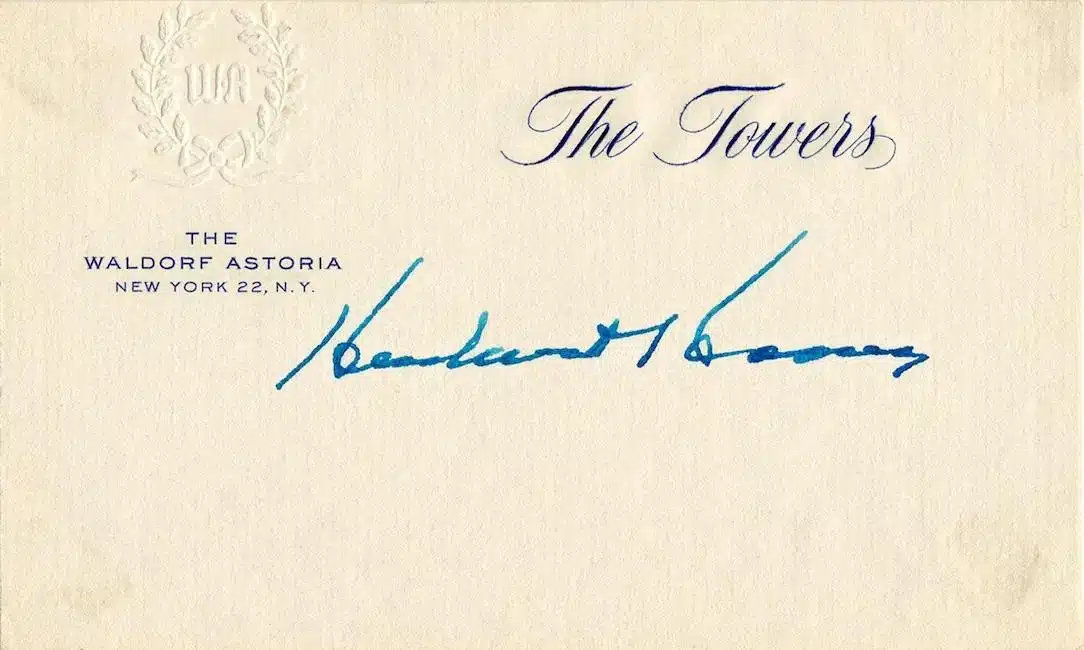 WA
The Towers
THE
WALDORF ASTORIA
NEW YORK 22, N.Y.
Herbert Hoover